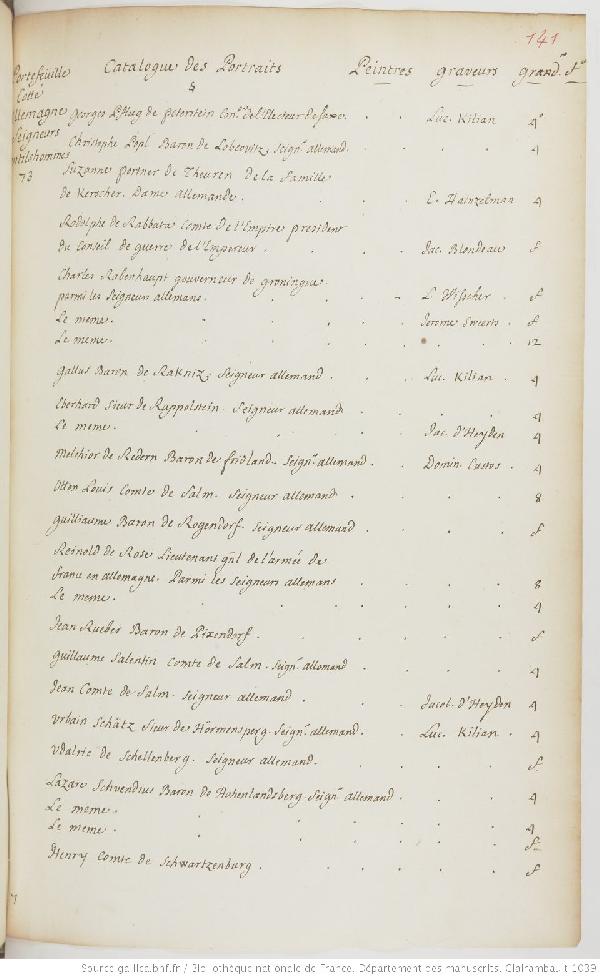 141
Portefeuille Catalogue des Portraits Peintres graveurs grandr fo
Cotté §
Allemagne
Seigneurs
gentilshommes
73
Georges Pflug de peterstein Conr de l'Electeur de saxe. Luc. Kilian 4o
Christophe Popl Baron de Lobcowitz, Seignr allemand. 4
Suzanne portner de Theuren de la famille
de Kerscher. Dame allemande. E. Hainzelman 4
Rodolphe de Rabbata Comte de l'Empire president
du Conseil de guerre de l'Empereur. Jac. Blondeau f
Charles Rabenhaupt gouverneur de groningue
parmi les Seigneur allemans. L Wisscher f
Le meme. Jerome Sweerts f
Le meme. 12
Gallus Baron de Rakniz, Seigneur allemand Luc. Kilian 4
Eberhard Sieur de Rappolstein. Seigneur allemand 4
Le meme. Jac. d'Heyden 4
Melchior de Redern Baron de fridland. Seignr allemand. Domin. Custos 4
Otton Louis Comte de Salm. Seigneur allemand 8
Guilliaume Baron de Rogendorf. Seigneur allemand f
Reinold de Rose Lieutenant gnl de l'armée de
france en allemagne. Parmi les Seigneurs allemans 8
Le meme. 4
Jean Rueber Baron de Pixendorf. f
Guillaume Salentin Comte de Salm. Seignr allemand 4
Jean Comte de Salm. Seigneur allemand Jacob. d'Heyden 4
Urbain Schätz Sieur de Hörmensperg. Seignr allemand. Luc. Kilian 4
Udalric de Schellenberg. Seigneur allemand. f
Lazare Schvendius Baron de Hohenlandsberg. Seignr allemand 4
Le meme. 4
Le meme. f
Henry Comte de Schwartzenburg. f
Source gallica.bnf.fr / Bibliothèque nationale de France. Département des manuscrits. Clairambault 1039